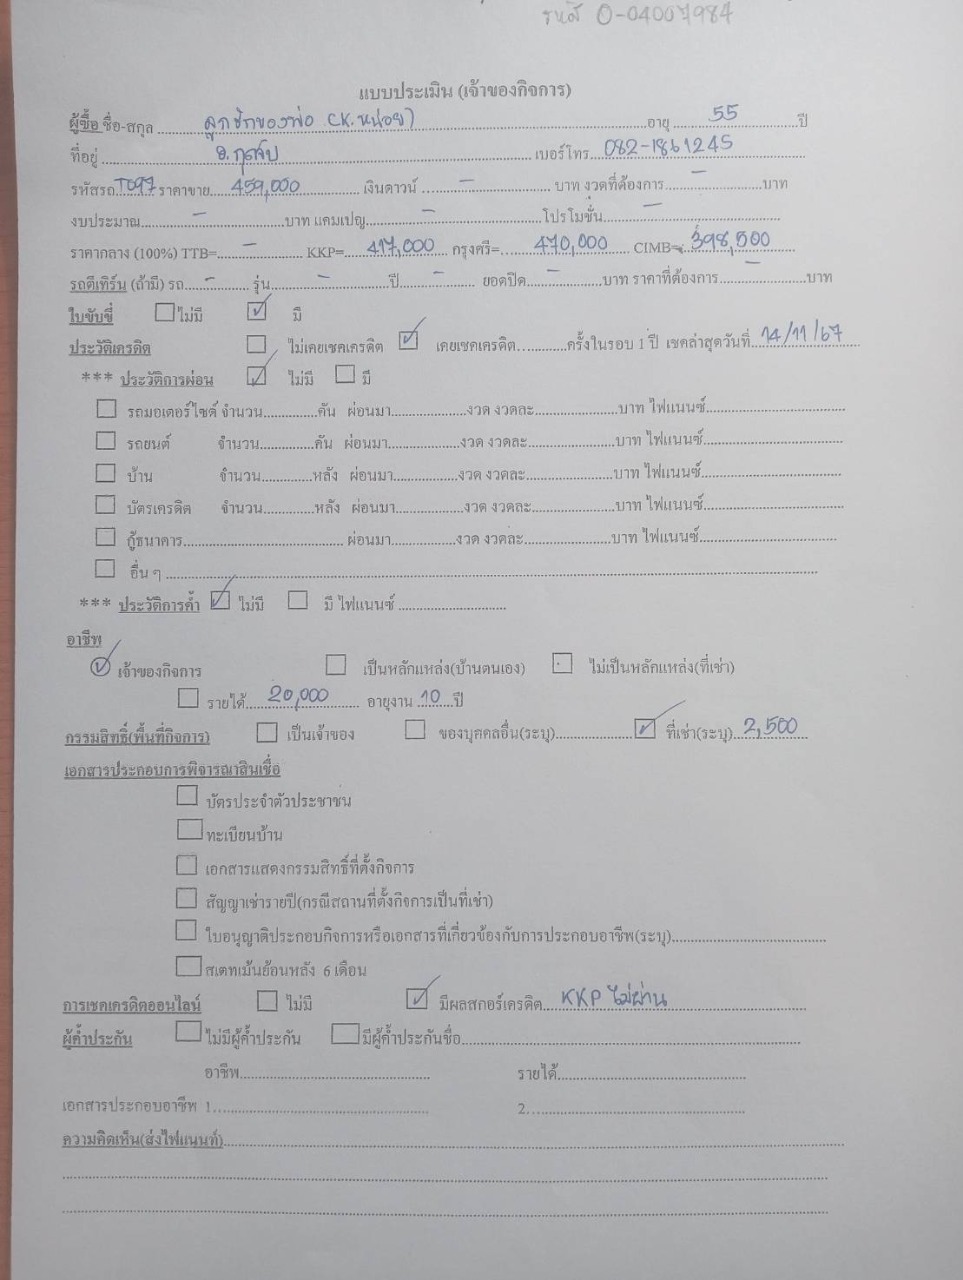 รหัส 0-04007984
แบบประเมิน (เจ้าของกิจการ)
ผู้ซื้อ ชื่อ-สกุล ลูกชักของพ่อ (K.หน่อย) อายุ 55 ปี
ที่อยู่ อ.กุดจับ เบอร์โทร 082-1861245
รหัสรถ T097 ราคาขาย 459,000 เงินดาวน์ - บาท งวดที่ต้องการ - บาท
งบประมาณ - บาท แคมเปญ - โปรโมชั่น -
ราคากลาง (100%) TTB= - KKP= 417,000 กรุงศรี= 470,000 CIMB= 398,500
รถตีเทิร์น (ถ้ามี) รถ - รุ่น - ปี - ยอดปิด - บาท ราคาที่ต้องการ - บาท
ใบขับขี่ ไม่มี ✓ มี
ประวัติเครดิต ไม่เคยเชคเครดิต ✓ เคยเชคเครดิต............ครั้งในรอบ 1 ปี เชคล่าสุดวันที่ 14/11/67
*** ประวัติการผ่อน ✓ ไม่มี มี
รถมอเตอร์ไซด์ จำนวน..............คัน ผ่อนมา..................งวด งวดละ....................บาท ไฟแนนซ์..............................
รถยนต์ จำนวน..............คัน ผ่อนมา..................งวด งวดละ....................บาท ไฟแนนซ์..............................
บ้าน จำนวน..............หลัง ผ่อนมา..................งวด งวดละ....................บาท ไฟแนนซ์..............................
บัตรเครดิต จำนวน..............หลัง ผ่อนมา..................งวด งวดละ....................บาท ไฟแนนซ์..............................
กู้ธนาคาร........................................ ผ่อนมา..................งวด งวดละ....................บาท ไฟแนนซ์..............................
อื่น ๆ ............................................................
*** ประวัติการค้ำ ✓ ไม่มี มี ไฟแนนซ์ ...........................
อาชีพ
✓ เจ้าของกิจการ เป็นหลักแหล่ง(บ้านตนเอง) ไม่เป็นหลักแหล่ง(ที่เช่า)
รายได้ 20,000 อายุงาน 10 ปี
กรรมสิทธิ์(พื้นที่กิจการ) เป็นเจ้าของ ของบุคคลอื่น(ระบุ).................... ✓ ที่เช่า(ระบุ) 2,500
เอกสารประกอบการพิจารณาสินเชื่อ
บัตรประจำตัวประชาชน
ทะเบียนบ้าน
เอกสารแสดงกรรมสิทธิ์ที่ตั้งกิจการ
สัญญาเช่ารายปี(กรณีสถานที่ตั้งกิจการเป็นที่เช่า)
ใบอนุญาติประกอบกิจการหรือเอกสารที่เกี่ยวข้องกับการประกอบอาชีพ(ระบุ)........................................
สเตทเม้นย้อนหลัง 6 เดือน
การเชคเครดิตออนไลน์ ไม่มี ✓ มีผลสกอร์เครดิต KKP ไม่ผ่าน
ผู้ค้ำประกัน ไม่มีผู้ค้ำประกัน มีผู้ค้ำประกันชื่อ............................................................
อาชีพ................................................ รายได้................................................
เอกสารประกอบอาชีพ 1..................................................... 2.....................................................
ความคิดเห็น(ส่งไฟแนนท์)............................................................